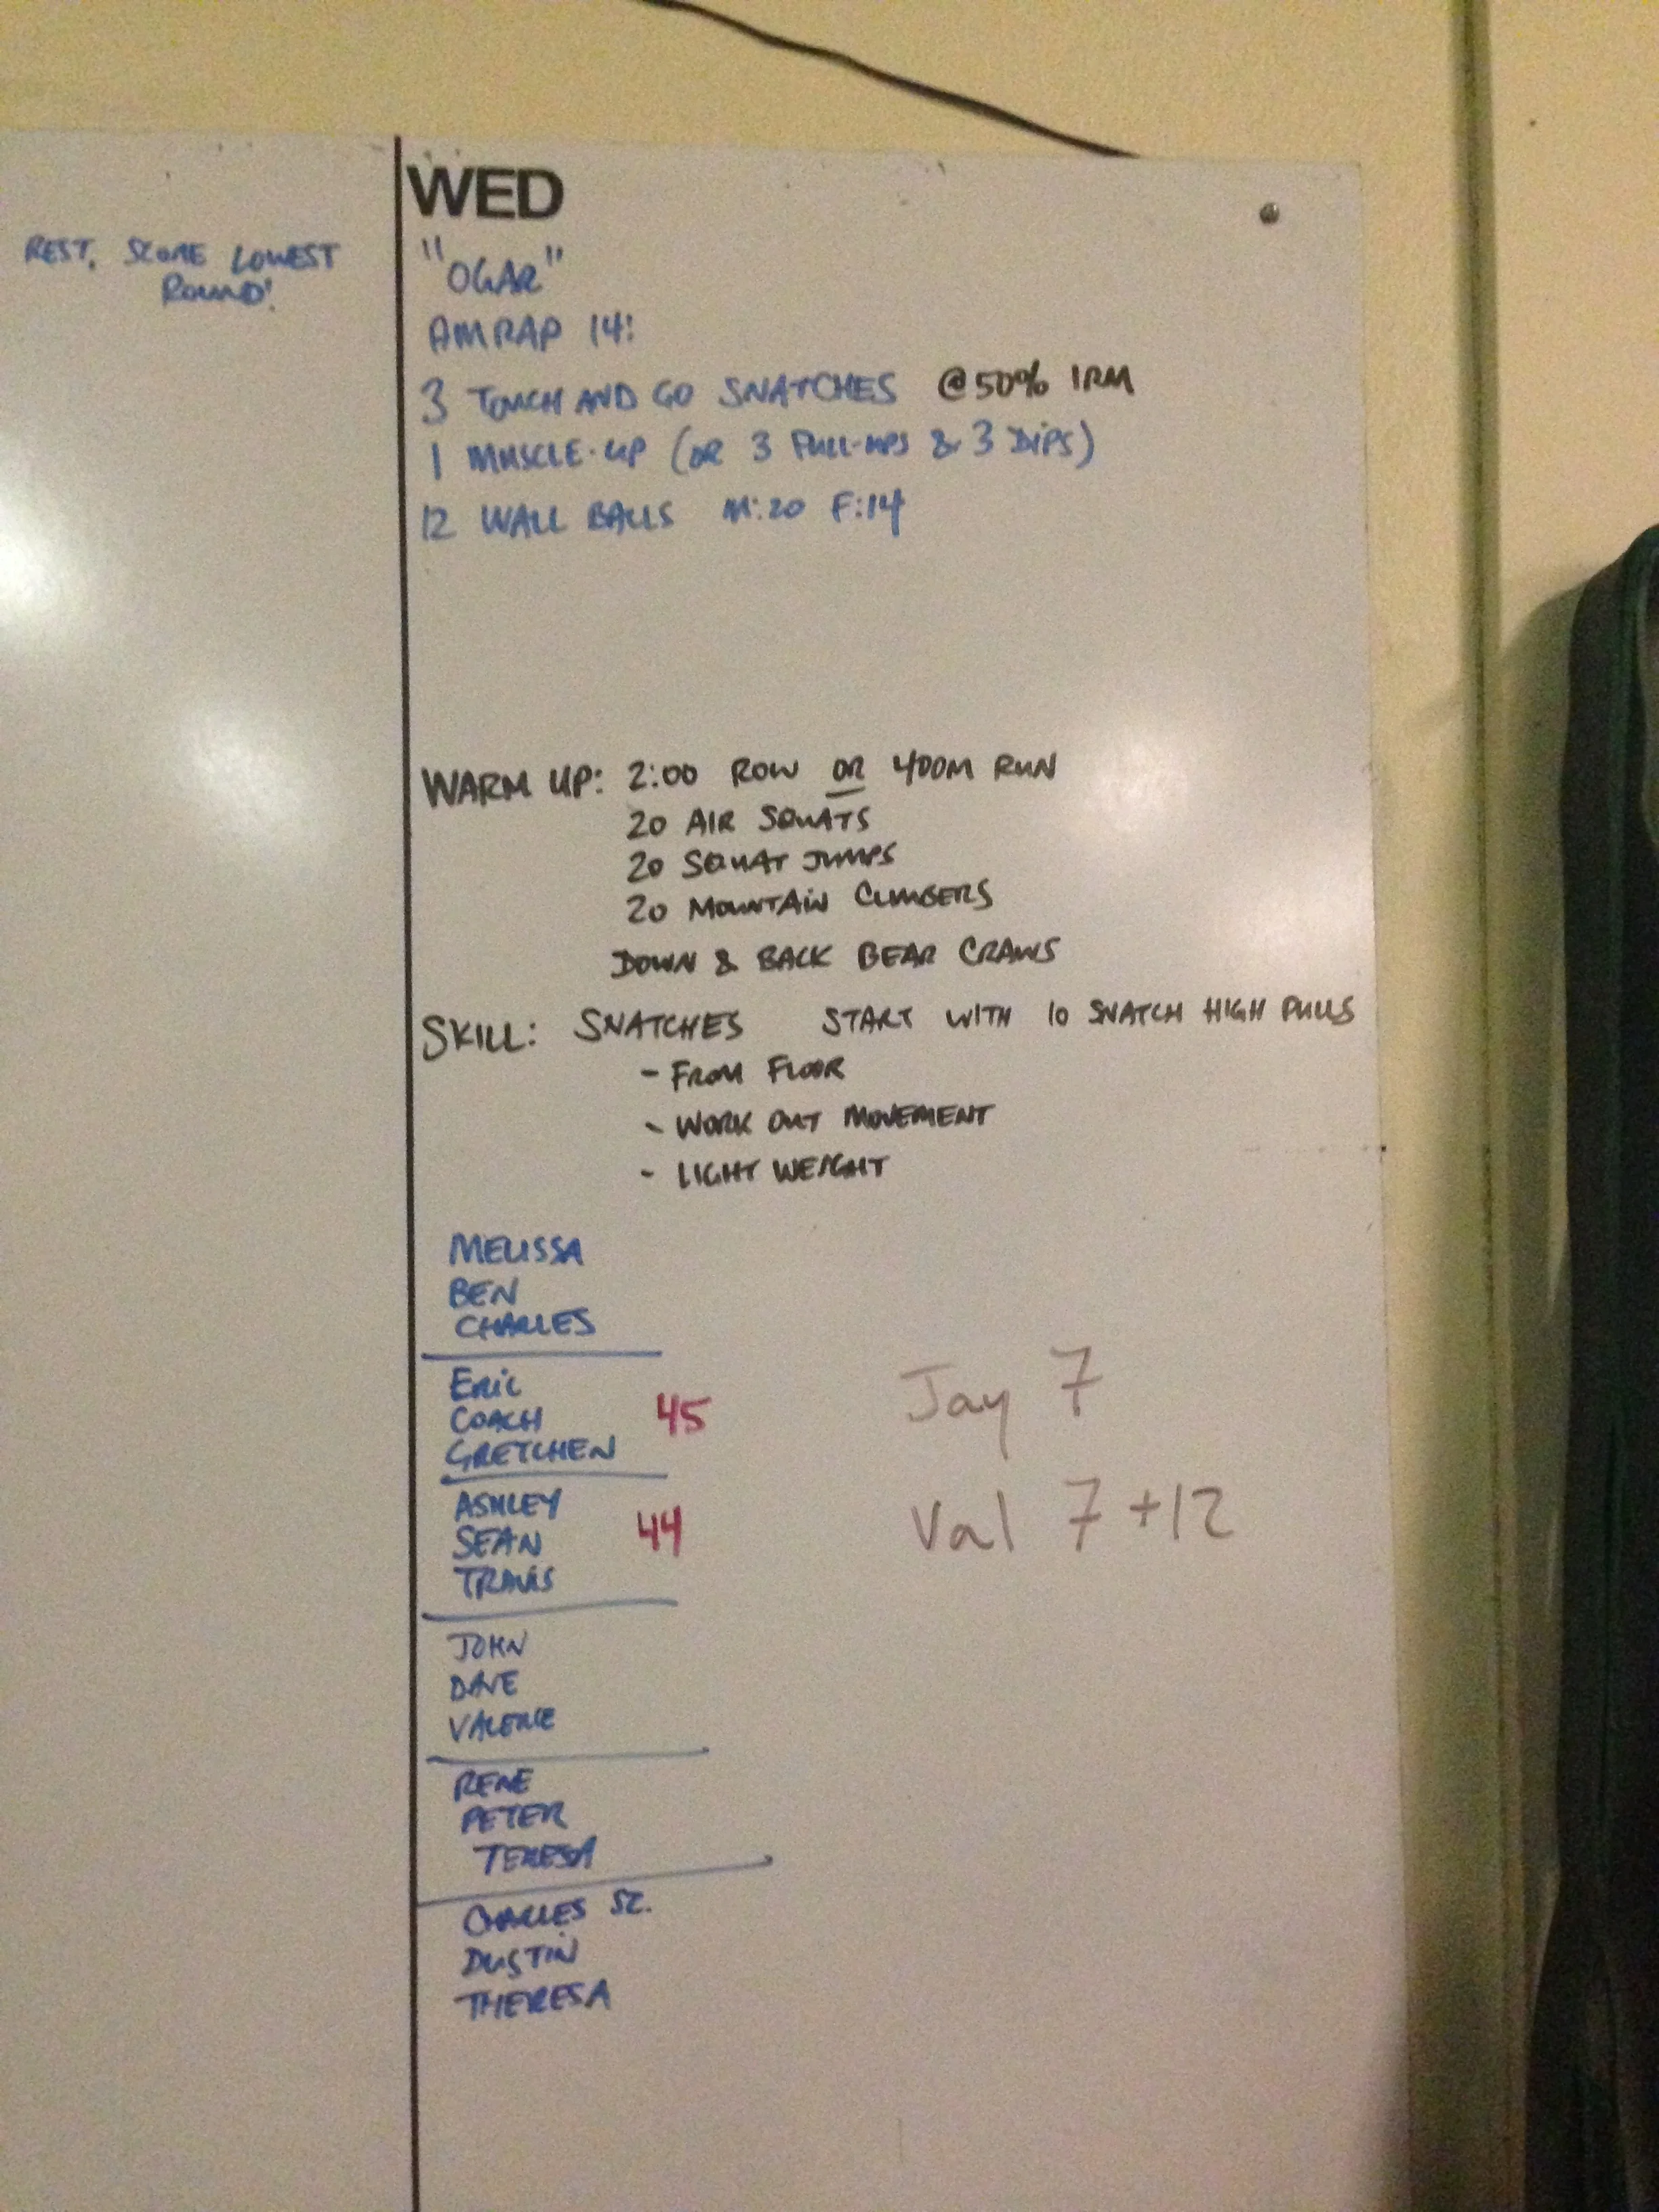 REST. SCORE LOWEST
ROUND!
WED
"OGAR"
AMRAP 14:
3 TOUCH AND GO SNATCHES @50% 1RM
1 MUSCLE-UP (OR 3 PULL-UPS & 3 DIPS)
12 WALL BALLS M:20 F:14
WARM UP: 2:00 ROW OR 400M RUN
20 AIR SQUATS
20 SQUAT JUMPS
20 MOUNTAIN CLIMBERS
DOWN & BACK BEAR CRAWLS
SKILL: SNATCHES START WITH 10 SNATCH HIGH PULLS
- FROM FLOOR
- WORK OUT MOVEMENT
- LIGHT WEIGHT
MELISSA
BEN
CHARLES
ERIC
COACH 45
GRETCHEN
Jay 7
ASHLEY
SEAN 44
TRAVIS
Val 7 +12
JOHN
DAVE
VALERIE
RENE
PETER
TERESA
CHARLES SZ.
DUSTIN
THERESA